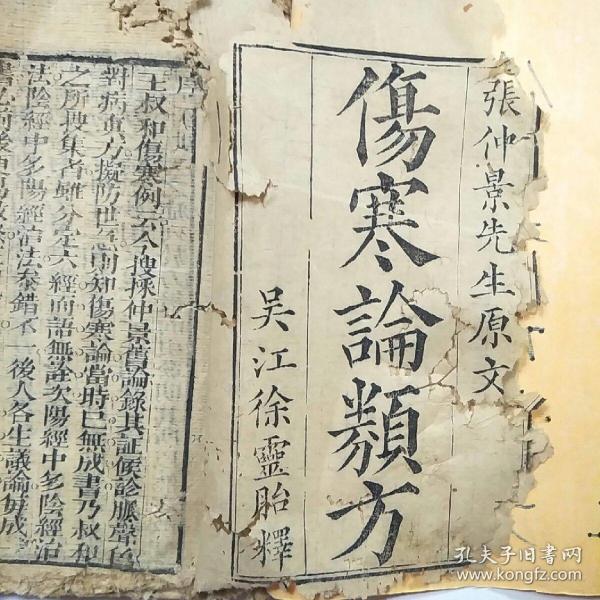 張仲景先生原文
傷寒論類方
吳江徐靈胎釋
序
王叔和傷寒例云今搜採仲景舊論錄其証候診脈聲色
對病真方擬防世急則知傷寒論當時已無成書乃叔和
之所搜集者雖分定六經而語無詮次陽經中多陰經治
法陰經中多陽經治法參錯不一後人各生議論每成
孔夫子旧書网
www.kongfz.com